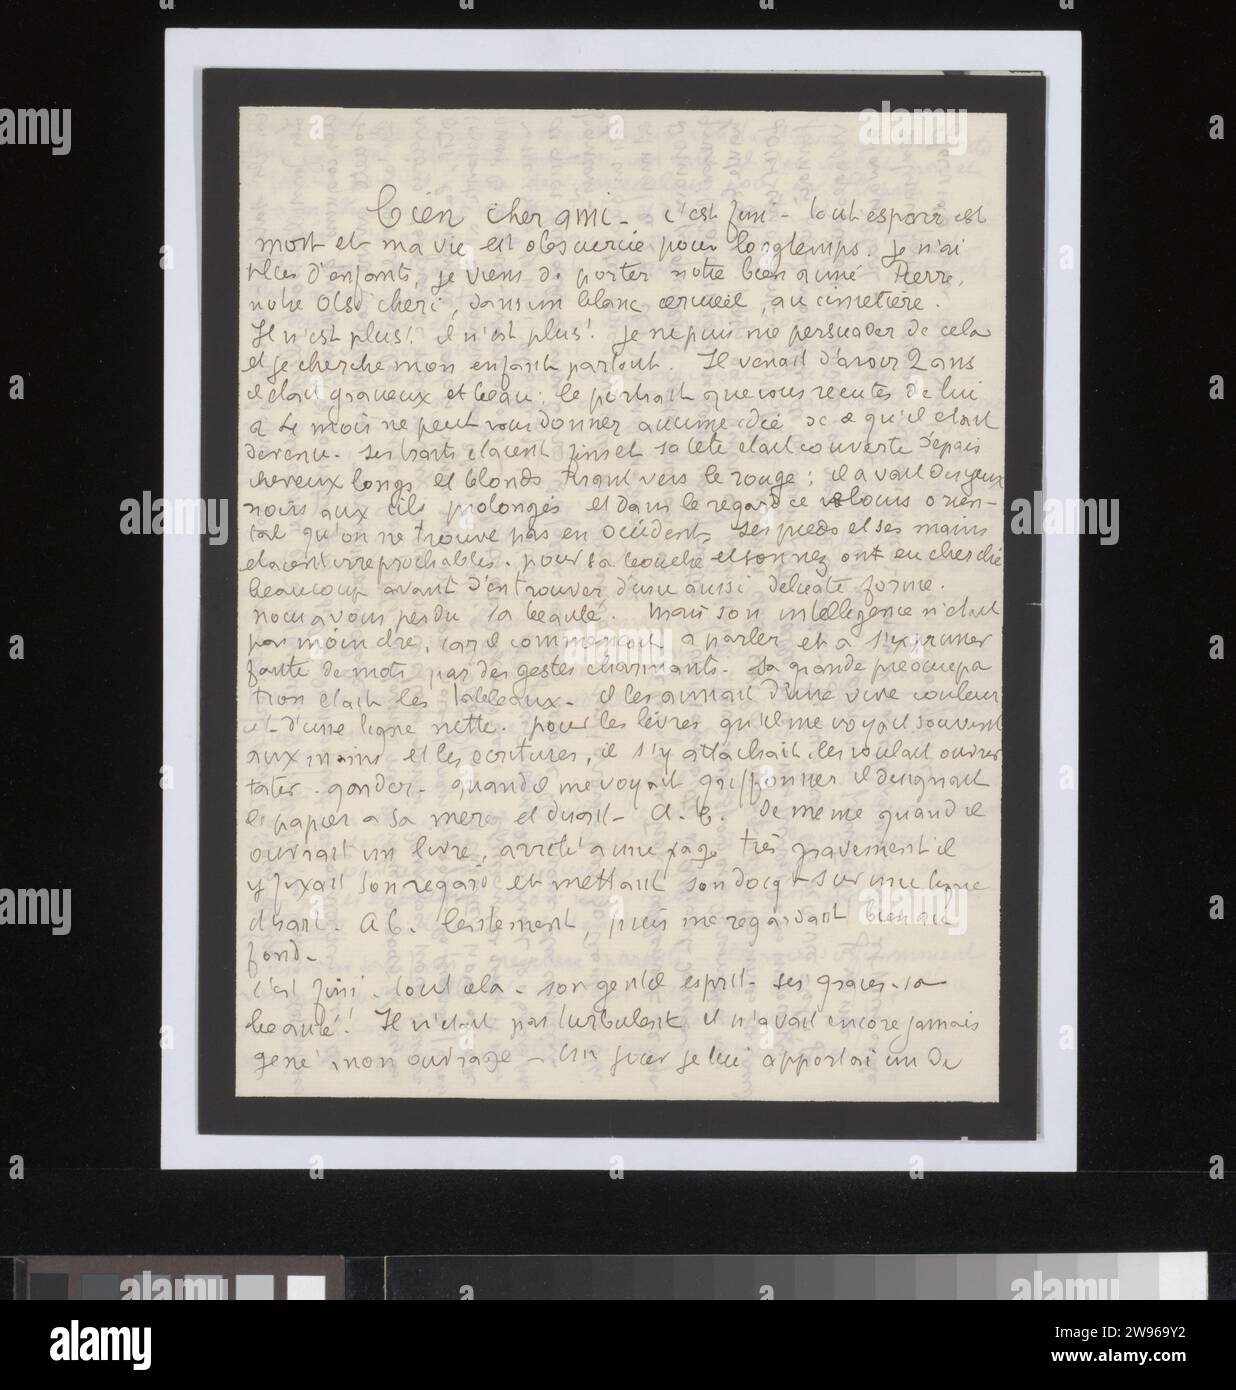 Bien cher ami - c'est fini - tout espoir est
mort et ma vie est obscurcie pour longtemps. je n'ai
plus d'enfants, je viens de porter notre bien aimé Pierre,
notre cheri, dans un blanc cercueil, au cimetière.
Il n'est plus! il n'est plus! je ne puis me persuader de cela
et je cherche mon enfant partout. Il venait d'avoir 2 ans
il était gracieux et beau; le portrait que vous recutes de lui
a mois ne peut vous donner aucune idée de ce qu'il etait
devenu. Ses traits etaient fins et sa tete etait couverte d'epais
cheveux longs et blonds tirant vers le rouge; il avait des yeux
noirs aux cils prolongés et dans le regard ce velours orien-
tal qu'on ne trouve pas en Occident. Ses pieds et ses mains
etaient irreprochables. pour sa bouche et son nez ont eu cherché
beaucoup avant d'en trouver d'une aussi delicate forme.
nous avons perdu sa beauté. Mais son intelligence n'etait
pas moindre, car il commencait a parler et a s'exprimer
faute de mots par des gestes charmants. Sa grande preocupa
tion etait les tableaux. il les aimait d'une vive couleur
et d'une ligne nette. pour les livres qu'il me voyait souvent
aux mains et les ecritures, il s'y attachait, les voulait ouvrir
tater. garder. quand il me voyait griffonner il designait
le papier a sa mere et disait - A. B. De meme quand il
ouvrait un livre, arrêté a une page très gravement il
y fixait son regard et mettait son doigt sur une ligne
disant. A b. lentement, puis me regardant bien au
fond.
C'est fini. tout cela. son gentil esprit. ses graces. sa
beauté! Il n'etait pas turbulent il n'avait encore jamais
gené mon ouvrage - Un jour je lui apportai un de
alamy
alamy
Image ID: 2W969Y2
www.alamy.com